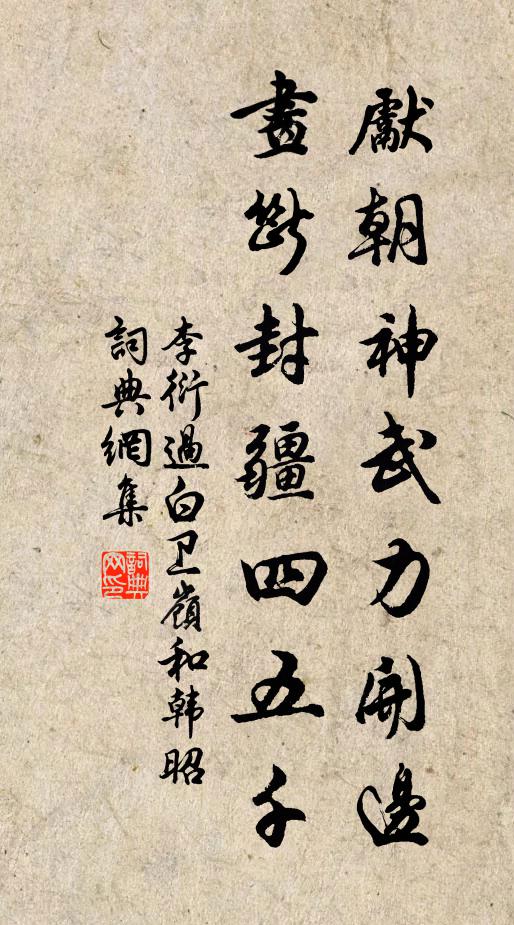 獻朝神武力開邊
畫斷封疆四五千
李衍過白卫嶺和韩昭
詞典網集
詞典网印